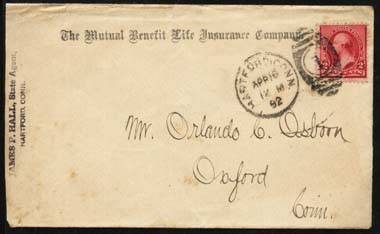 The Mutual Benefit Life Insurance Company
JAMES F. HALL, State Agent,
HARTFORD, CONN.
HARTFORD, CONN.
APR 16
12 M
92
1
2
Mr. Orlando C. Osborn
Oxford
Conn.